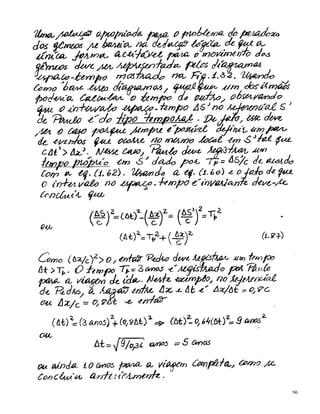 Uma solução apropriada para o problema do paradoxo
dos gêmeos se baseia na dedução lógica de que a
única forma aceitável para o movimento dos
gêmeos deve ser representada pelos diagramas
espaço-tempo mostrado na Fig. 1.32. Usando
como base esses diagramas, qualquer um dos irmãos
poderia calcular o tempo do outro, observando
que o intervalo espaço-tempo ΔS' no referencial S'
de Paulo é do tipo temporal. De fato, esse deve
ser o caso porque sempre é possível definir um par
de eventos que ocorre no mesmo local em S' tal que
cΔt' > Δx'. Nesse caso, Paulo deve registrar um
tempo próprio em S' dado por Tp = ΔS/c de acordo
com a eq. (1.62). Usando a eq. (1.60) e o fato de que
o intervalo no espaço-tempo é invariante deve-se
concluir que
(ΔS/c)² = (Δt)² - (Δx/c)² = (ΔS'/c)² = Tp²
ou
(Δt)² = Tp² + (Δx/c)² (1.87)
Como (Δx/c)² > 0, então Pedro deve registrar um tempo
Δt > Tp. O tempo Tp = 3 anos é registrado por Paulo
para a viagem de ida. Neste exemplo, no referencial
de Pedro, a razão entre Δx e Δt é Δx/Δt = 0,8c
ou Δx/c = 0,8Δt e então
(Δt)² = (3 anos)² + (0,8Δt)² ⇒ (Δt)² - 0,64(Δt)² = 9 anos²
ou
Δt = √9/0,36 anos = 5 anos
ou ainda 10 anos para a viagem completa, como se
concluiu anteriormente.
96